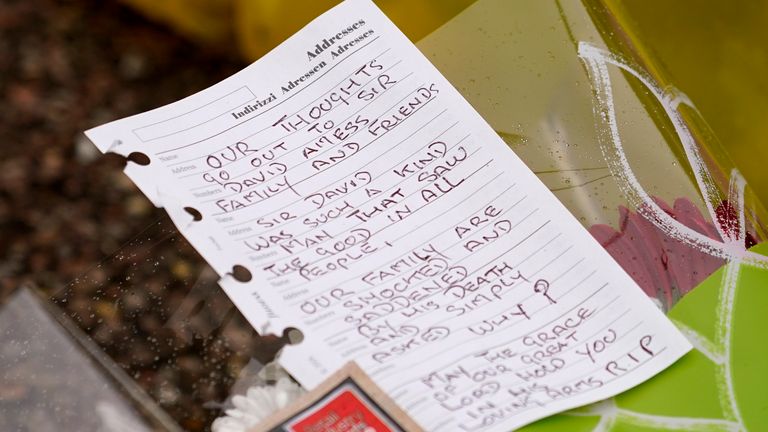 Addresses
Indirizzi Adressen Adresses
Name
Address
Numbers
Name
Address
Numbers
Name
Address
Numbers
Name
OUR THOUGHTS
GO OUT TO SIR
DAVID AMESS,
FAMILY AND FRIENDS
SIR DAVID
WAS SUCH A KIND
MAN THAT SAW
THE GOOD IN ALL
PEOPLE,
OUR FAMILY ARE
SHOCKED AND
SADDENED
BY HIS DEATH
AND SIMPLY
ASKED WHY?
MAY THE GRACE
OF OUR GREAT
LORD HOLD YOU
IN HIS
LOVING ARMS R.I.P